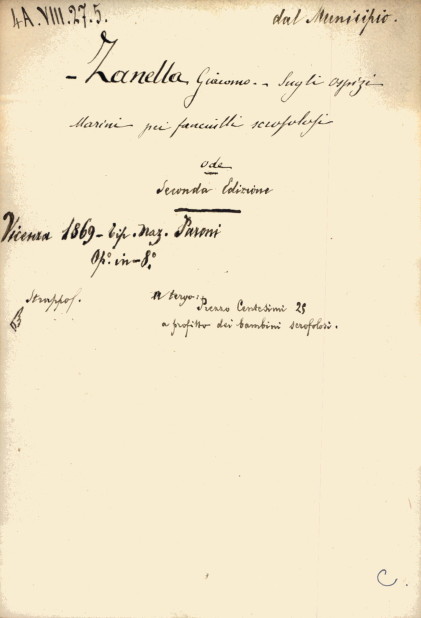 4A.VIII.27.5.
dal Munisipio.
- Zanella Giacomo. - Sugli ospizi
Marini pei fanciulli scrofolosi
ode
Seconda Edizione
Vicenza 1869 - Tip. Naz. Paroni
Op.º in-8.º
A tergo:
Prezzo Centesimi 25
a profitto dei bambini scrofolosi.
B
C.